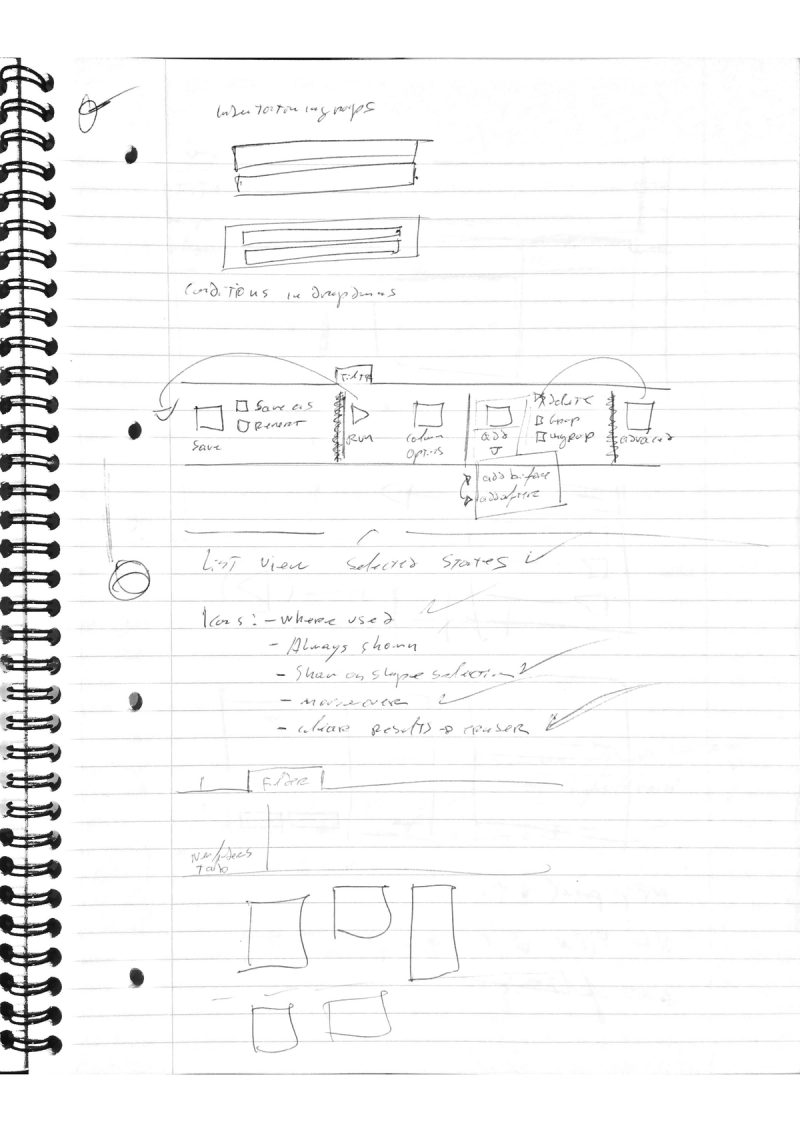 Indentation in groups
Conditions in dropdowns
Filter
Save
Save as
Revert
Run
Column
Options
add
Delete
Group
ungroup
advanced
add before
add after
List view selected states
Icons: - where used
- Always shown
- Show on shape selection
- mouseover
- clear results → eraser
Filter